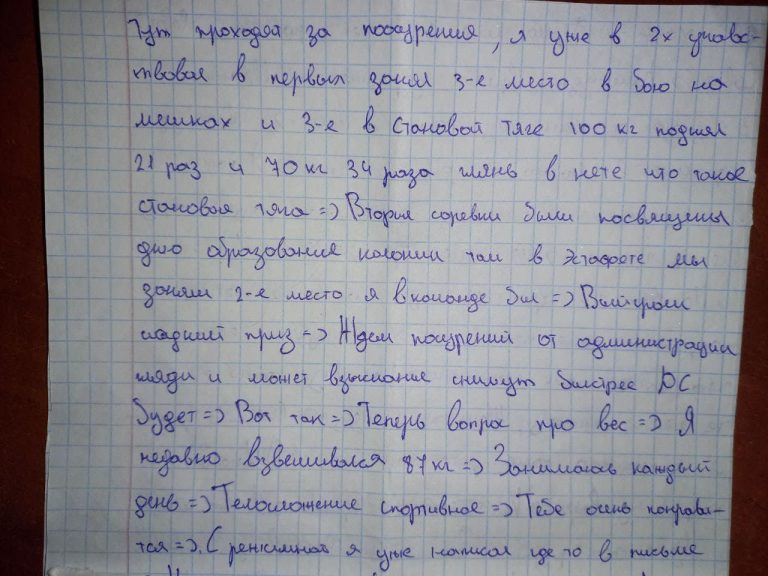 Тут проходят за поощрения, я уже в 2х учавс-
твовал в первых занял 3-е место в бою на
мешках и 3-е в становой тяге 100 кг поднял
21 раз и 70 кг 34 раза глянь в нете что такое
становая тяга =) Вторые соревы были посвящены
дню образования колонии там в Эстафете мы
заняли 2-е место я в команде был =) Выиграли
сладкий приз =) Ждем поощрений от администрации
гляди и может взыскание снимут быстрее ДС
будет =) Вот так =) Теперь вопрос про вес =) Я
недавно взвешивался 87 кг =) Занимаюсь каждый
день =) Телосложение спортивное =) Тебе очень понрави-
тся =). С я уже написал где то в письме